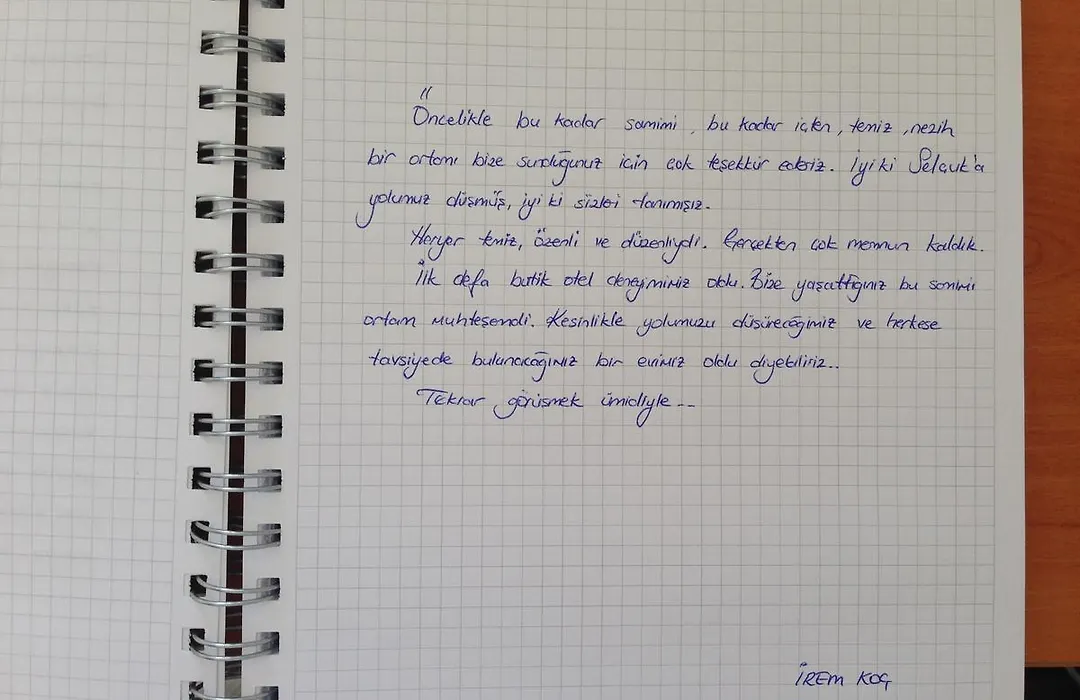 "
Öncelikle bu kadar samimi, bu kadar içten, temiz, nezih
bir ortamı bize sunduğunuz için çok teşekkür ederiz. İyi ki Selçuk'a
yolumuz düşmüş, iyi ki sizleri tanımışız.
Heryer temiz, özenli ve düzenliydi. Gerçekten çok memnun kaldık.
İlk defa butik otel deneyimimiz oldu. Bize yaşattığınız bu samimi
ortam muhteşemdi. Kesinlikle yolumuzu düşüreceğimiz ve herkese
tavsiyede bulunacağımız bir evimiz oldu diyebiliriz..
Tekrar görüşmek ümidiyle...
İREM KOÇ